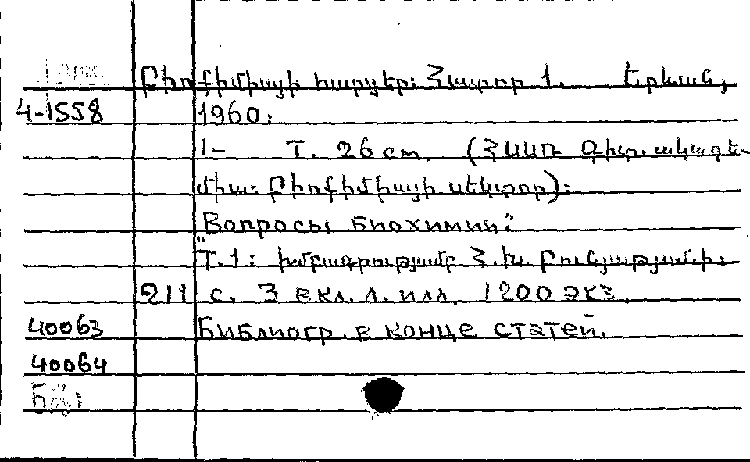 Բիոքիմիայի հարցեր: Հատոր 1. Երևան,
4-1558 1960:
1- T. 26 cm. (ՀՍՍՌ Գիտ. ակադե-
միա: Բիոքիմիայի սեկտոր):
Вопросы биохимии:
"T.1: Խմբագրությամբ Հ. Խ. Բունյաթյանի:
211 с. 3 вкл. л. илл. 1200 экз.
40063 Библиогр. в конце статей.
40064